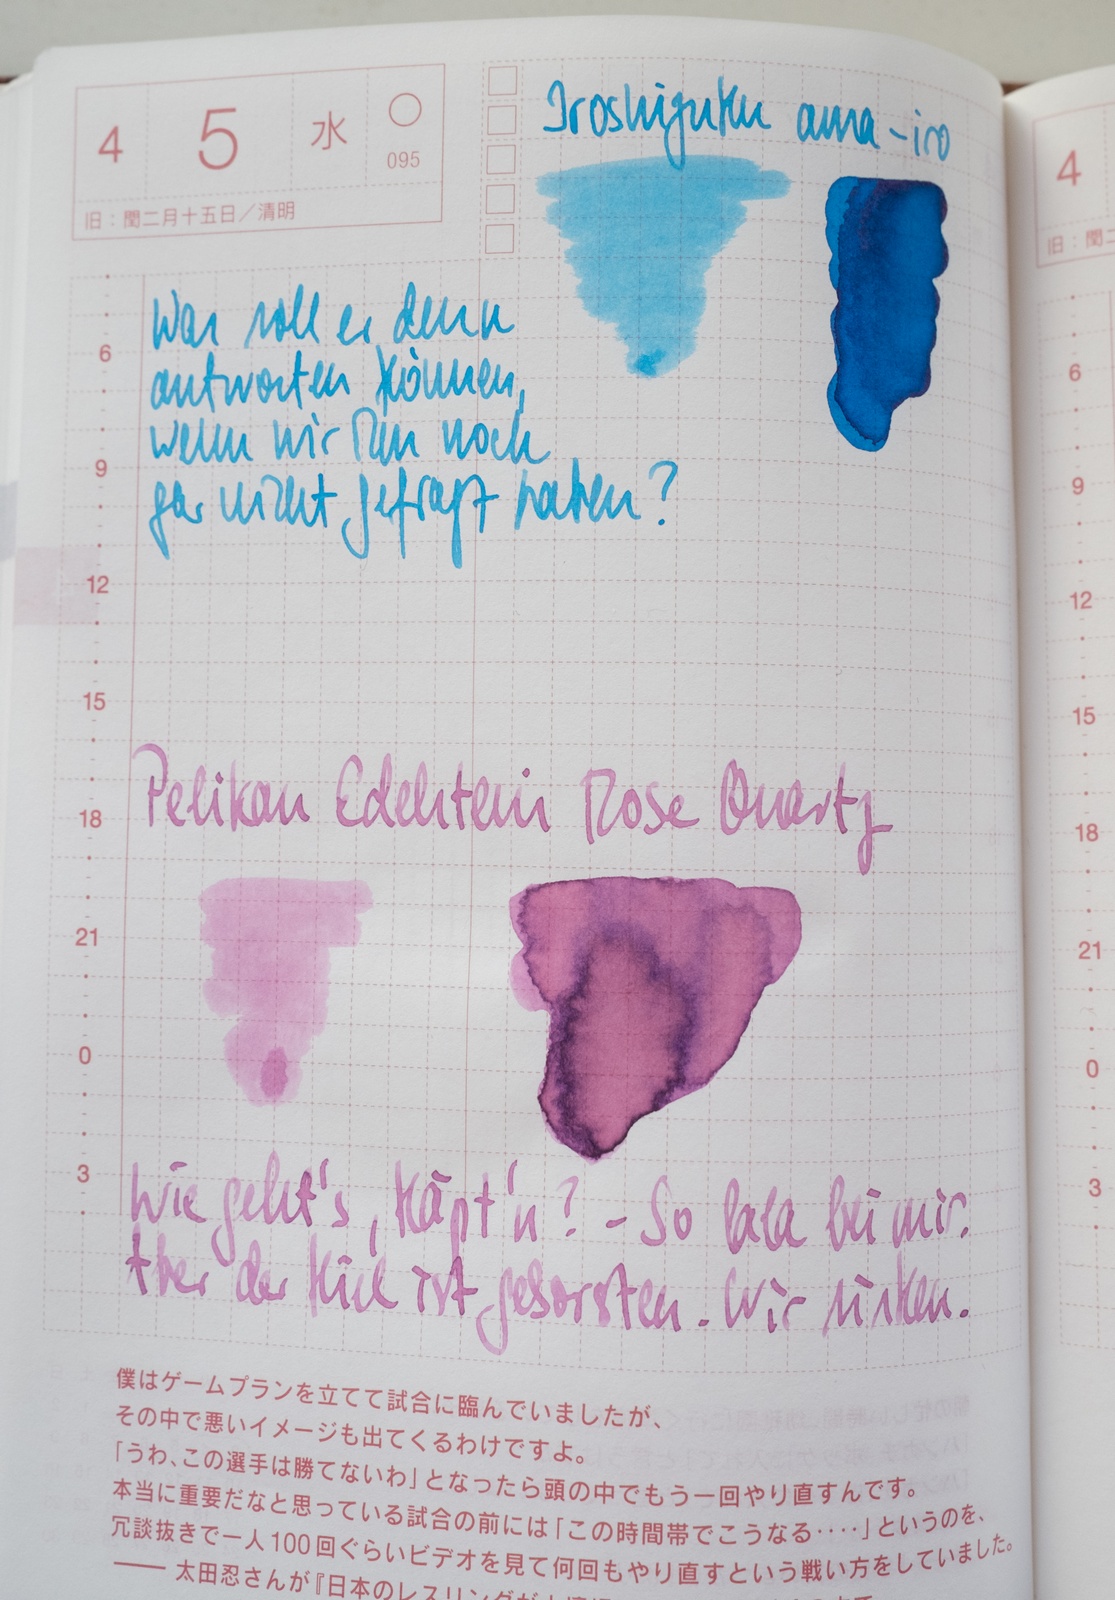 4 5 水
095
旧：閏二月十五日／清明
Iroshizuku ama-iro
Was soll er denn
antworten können,
wenn wir ihn noch
gar nicht gefragt haben?
6
9
12
15
18
21
0
3
Pelikan Edelstein Rose Quartz
Wie geht's, Käpt'n? - So lala bei mir.
Aber der Kiel ist geborsten. Wir sinken.
僕はゲームプランを立てて試合に臨んでいましたが、
その中で悪いイメージも出てくるわけですよ。
「うわ、この選手は勝てないわ」となったら頭の中でもう一回やり直すんです。
本当に重要だなと思っている試合の前には「この時間帯でこうなる‥‥」というのを、
冗談抜きで一人100回ぐらいビデオを見て何回もやり直すという戦い方をしていました。
── 太田忍さんが『日本のレスリングが
4
旧：閏二
6
9
12
15
18
21
0
3